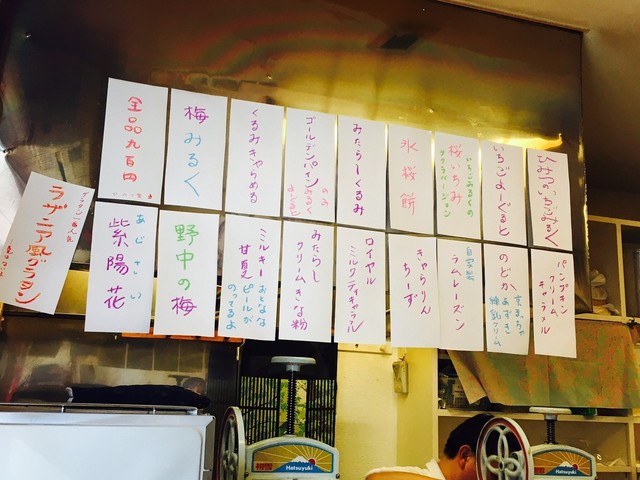 ひみつのいちごみるく
いちごよーぐると
桜いちみ
いちごみるくの
サクラバージョン
氷桜餅
みたらしくるみ
ゴールデンパイン
のみ
みるく
よーぐると
くるみきゃらめる
梅みるく
全品九百円
パンプキン
クリーム
キャラメル
のどか
京まっちゃ
あずき
練乳クリーム
自家製
ラムレーズン
きゃらりん
ちーず
ロイヤル
ミルクティキャラメル
みたらし
クリームきな粉
ミルキー
甘夏
おとなな
ピールが
のってるよ
野中の梅
あじさい
紫陽花
ラザニア風グラタン
Hatsuyuki
Hatsuyuki